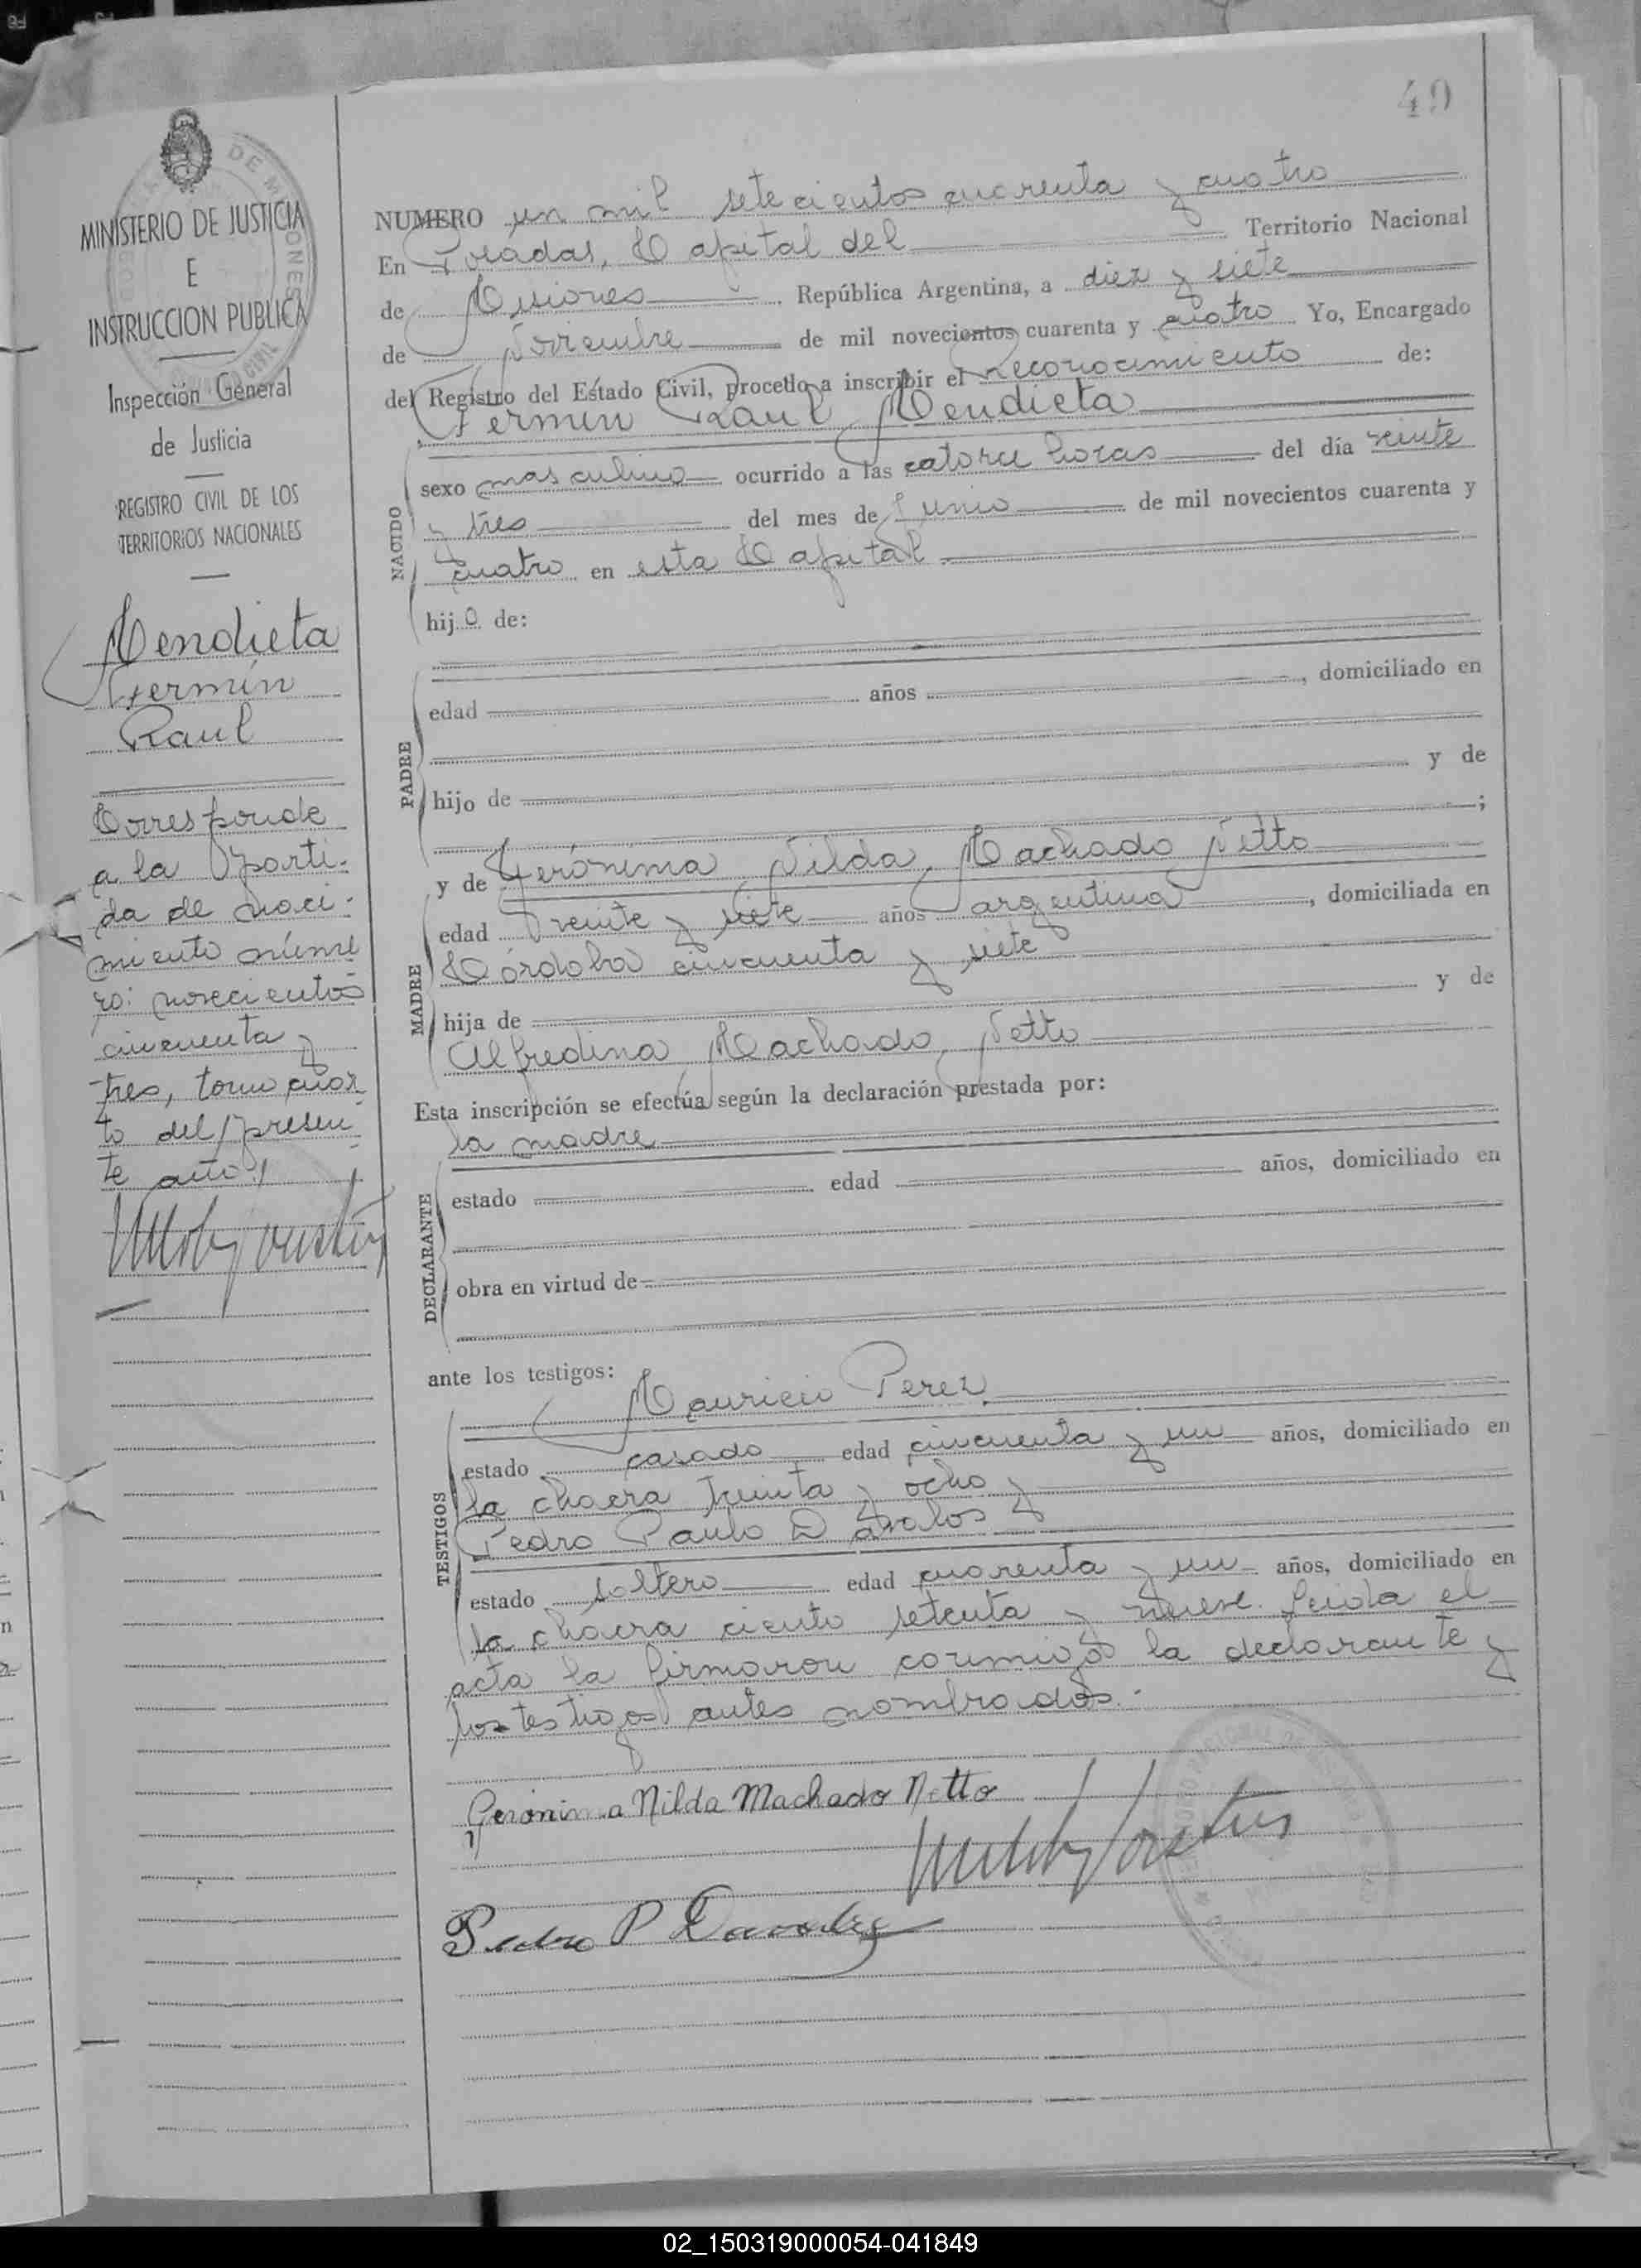 49
MINISTERIO DE JUSTICIA
E
INSTRUCCION PUBLICA
Inspección General
de Justicia
REGISTRO CIVIL DE LOS
TERRITORIOS NACIONALES
Mendieta
Fermín
Raul
Corresponde
a la parti-
da de naci-
miento núme
ro: novecientos
cincuenta y
tres, tomo cuar
to del presen
te año
NUMERO un mil setecientos cuarenta y cuatro
En Posadas, Capital del Territorio Nacional
de Misiones, República Argentina, a diez y siete
de Noviembre de mil novecientos cuarenta y cuatro Yo, Encargado
del Registro del Estado Civil, procedo a inscribir el Reconocimiento de:
Fermin Raul Mendieta
NACIDO
sexo masculino ocurrido a las catorce horas del día veinte
y tres del mes de Junio de mil novecientos cuarenta y
cuatro en esta Capital
hijo de:
PADRE
edad años, domiciliado en
hijo de y de
;
MADRE
y de Gerónima Nilda Machado Netto
edad veinte y siete años argentina, domiciliada en
Córdoba cincuenta y siete
hija de y de
Alfredina Machado Netto
Esta inscripción se efectúa según la declaración prestada por:
la madre
DECLARANTE
estado edad años, domiciliado en
obra en virtud de
ante los testigos:
TESTIGOS
Mauricio Perez
estado casado edad cincuenta y un años, domiciliado en
la chacra treinta y ocho y
Pedro Paulo D avalos
estado soltero edad cuarenta y un años, domiciliado en
la chacra ciento setenta y nueve. Leida el
acta la firmaron conmigo la declarante y
los testigos antes nombrados.-
Gerónima Nilda Machado Netto
Pedro P
02_150319000054-041849